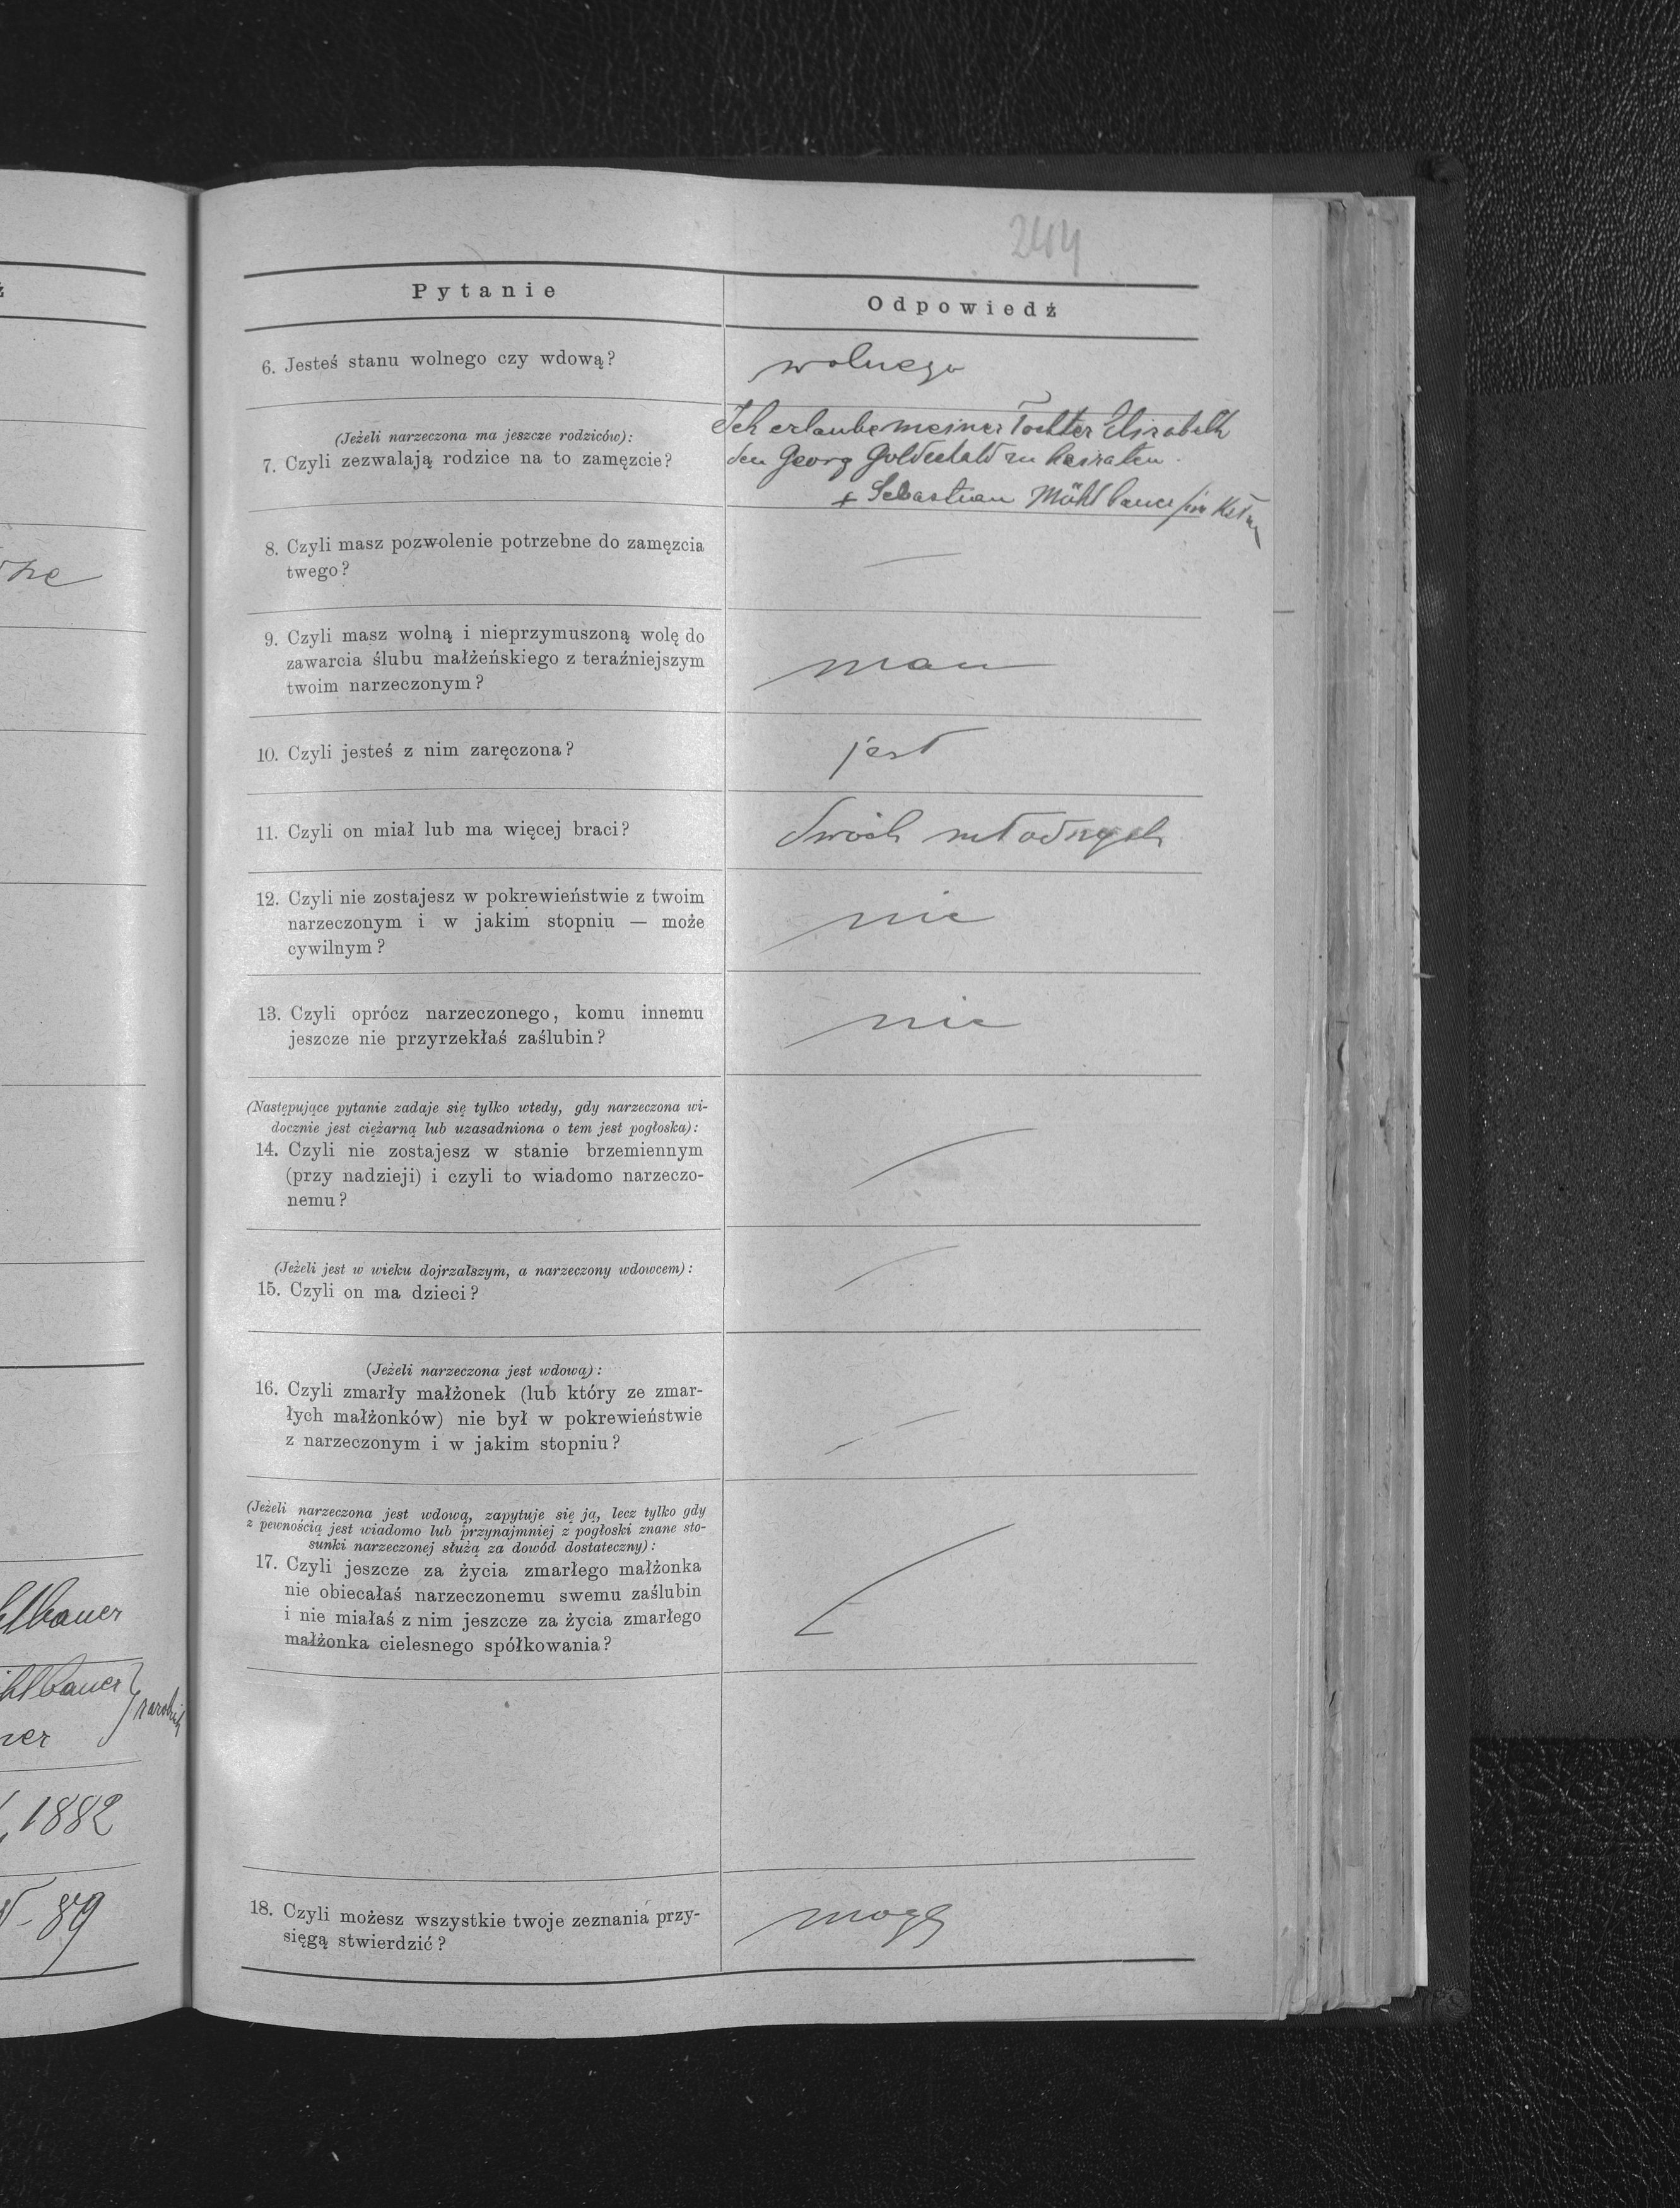 244
Pytanie
Odpowiedź
6. Jesteś stanu wolnego czy wdową?
wolnego
(Jeżeli narzeczona ma jeszcze rodziców):
7. Czyli zezwalają rodzice na to zamęzcie?
Ich erlaube meiner Tochter Elisabeth
den Georg zu heiraten.
+ Sebastian Mühlbauer
8. Czyli masz pozwolenie potrzebne do zamęzcia
twego?
—
9. Czyli masz wolną i nieprzymuszoną wolę do
zawarcia ślubu małżeńskiego z teraźniejszym
twoim narzeczonym?
mam
10. Czyli jesteś z nim zaręczona?
jest
11. Czyli on miał lub ma więcej braci?
dwóch młodszych
12. Czyli nie zostajesz w pokrewieństwie z twoim
narzeczonym i w jakim stopniu — może
cywilnym?
nie
13. Czyli oprócz narzeczonego, komu innemu
jeszcze nie przyrzekłaś zaślubin?
nie
(Następujące pytanie zadaje się tylko wtedy, gdy narzeczona wi-
docznie jest ciężarną lub uzasadniona o tem jest pogłoska):
14. Czyli nie zostajesz w stanie brzemiennym
(przy nadzieji) i czyli to wiadomo narzeczo-
nemu?
(Jeżeli jest w wieku dojrzalszym, a narzeczony wdowcem):
15. Czyli on ma dzieci?
(Jeżeli narzeczona jest wdową):
16. Czyli zmarły małżonek (lub który ze zmar-
łych małżonków) nie był w pokrewieństwie
z narzeczonym i w jakim stopniu?
(Jeżeli narzeczona jest wdową, zapytuje się ją, lecz tylko gdy
z pewnością jest wiadomo lub przynajmniej z pogłoski znane sto-
sunki narzeczonej służą za dowód dostateczny):
17. Czyli jeszcze za życia zmarłego małżonka
nie obiecałaś narzeczonemu swemu zaślubin
i nie miałaś z nim jeszcze za życia zmarłego
małżonka cielesnego spółkowania?
18. Czyli możesz wszystkie twoje zeznania przy-
sięgą stwierdzić?
mogę
hlbauer
ühlbauer
ner
1882
89